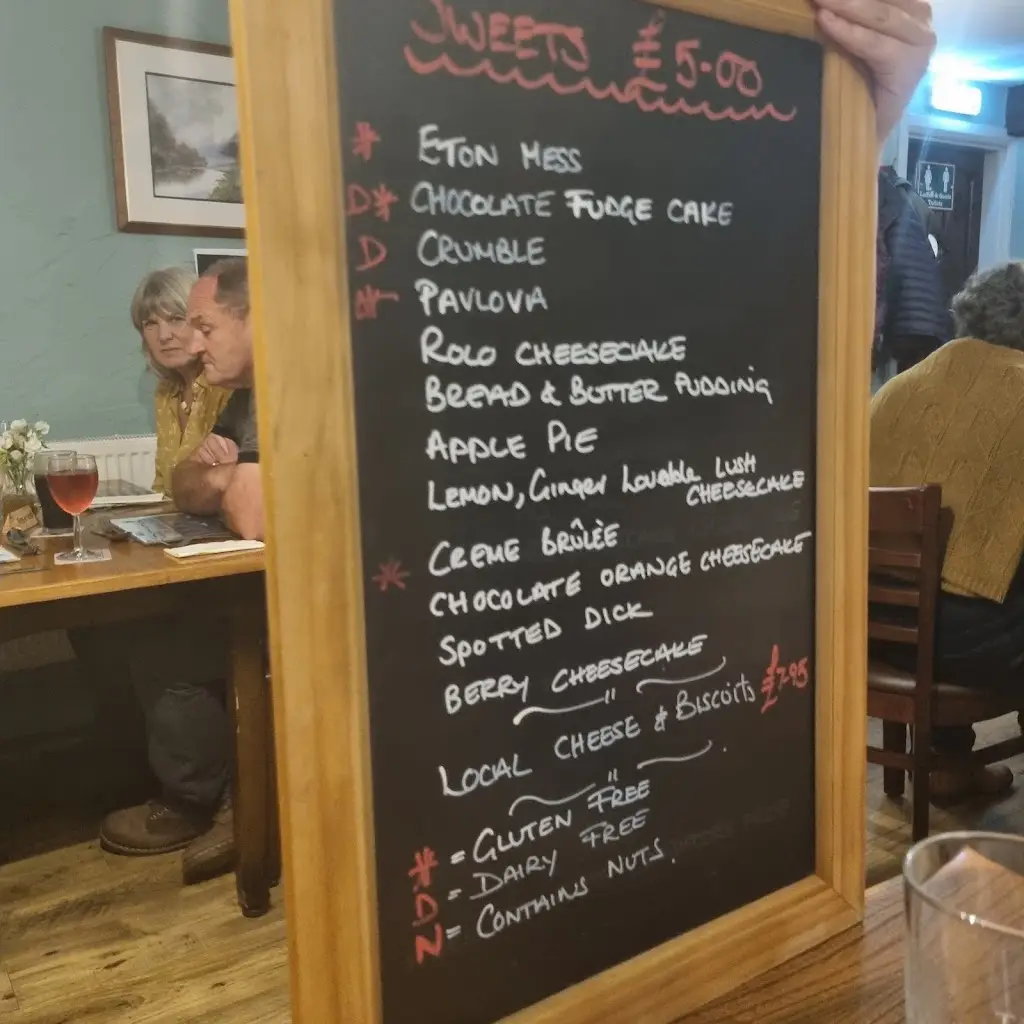 SWEETS £5.00
* ETON MESS
D* CHOCOLATE FUDGE CAKE
D CRUMBLE
* PAVLOVA
ROLO CHEESECAKE
BREAD & BUTTER PUDDING
APPLE PIE
LEMON, Ginger Lovable LUSH
CHEESECAKE
* CREME BRÛLÈE
CHOCOLATE ORANGE CHEESECAKE
SPOTTED DICK
BERRY CHEESECAKE
"
LOCAL CHEESE & BISCUITS £7.95
"
* = GLUTEN FREE
D = DAIRY FREE
N = CONTAINS NUTS.
Toilets